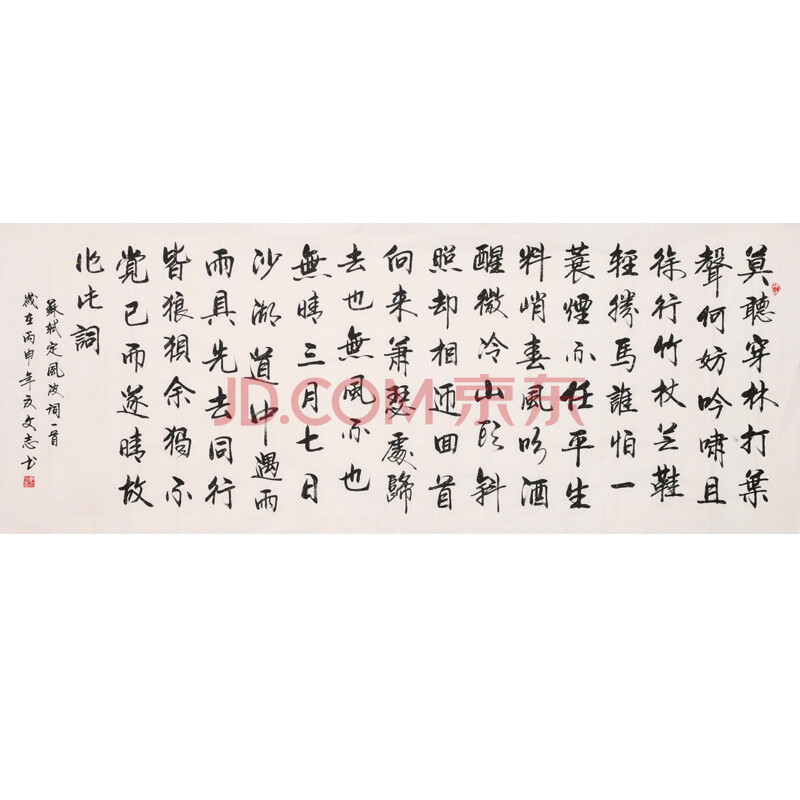 莫聽穿林打葉
聲何妨吟嘯且
徐行竹杖芒鞋
輕勝馬誰怕一
蓑煙雨任平生
料峭春風吹酒
醒微冷山頭斜
照却相迎回首
向来蕭瑟處歸
去也無風亦也
無晴三月七日
沙湖道中遇雨
雨具先去同行
皆狼狽余獨不
覺已而遂晴故
作此詞
蘇軾定風波詞一首
歲在丙申年夏文志书
JD.COM 京东